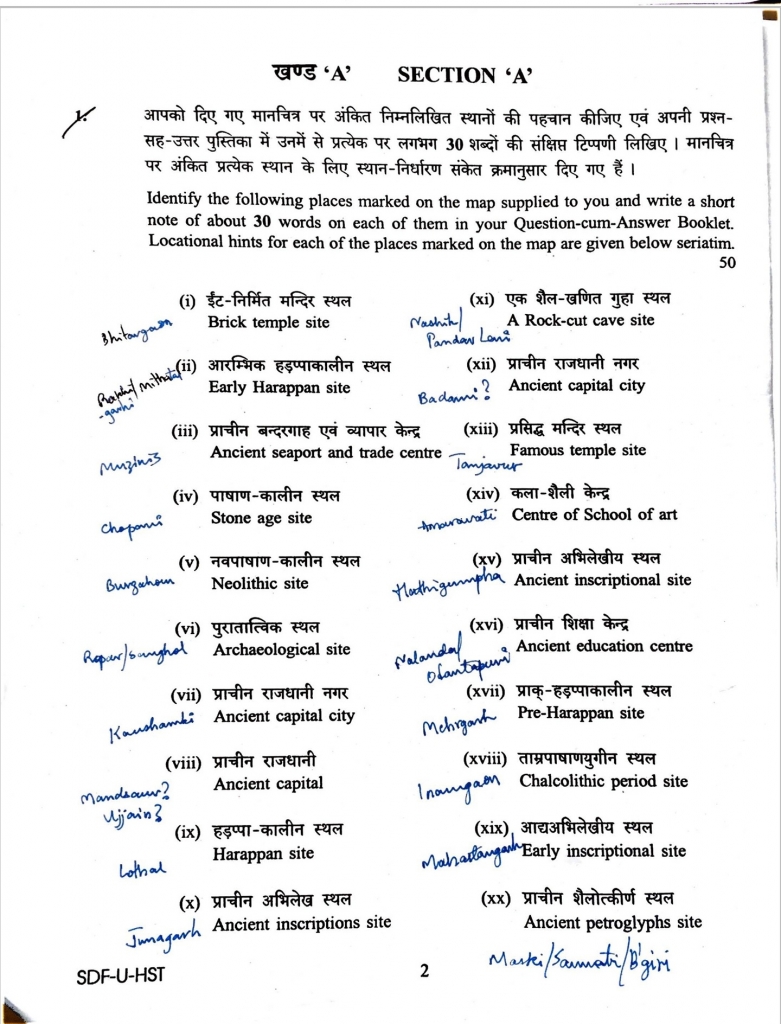 खण्ड 'A' SECTION 'A'
1. आपको दिए गए मानचित्र पर अंकित निम्नलिखित स्थानों की पहचान कीजिए एवं अपनी प्रश्न-
सह-उत्तर पुस्तिका में उनमें से प्रत्येक पर लगभग 30 शब्दों की संक्षिप्त टिप्पणी लिखिए । मानचित्र
पर अंकित प्रत्येक स्थान के लिए स्थान-निर्धारण संकेत क्रमानुसार दिए गए हैं ।
Identify the following places marked on the map supplied to you and write a short
note of about 30 words on each of them in your Question-cum-Answer Booklet.
Locational hints for each of the places marked on the map are given below seriatim.
50
(i) ईंट-निर्मित मन्दिर स्थल
Brick temple site
Bhitargaon
(ii) आरम्भिक हड़प्पाकालीन स्थल
Early Harappan site
Rakhi/Mithatal
-garhi
(iii) प्राचीन बन्दरगाह एवं व्यापार केन्द्र
Ancient seaport and trade centre
Muziris
(iv) पाषाण-कालीन स्थल
Stone age site
Chopani
(v) नवपाषाण-कालीन स्थल
Neolithic site
Burzahom
(vi) पुरातात्विक स्थल
Archaeological site
Ropar/Sanghol
(vii) प्राचीन राजधानी नगर
Ancient capital city
Kaushambi
(viii) प्राचीन राजधानी
Ancient capital
Mandsaur?
Ujjain?
(ix) हड़प्पा-कालीन स्थल
Harappan site
Lothal
(x) प्राचीन अभिलेख स्थल
Ancient inscriptions site
Junagarh
(xi) एक शैल-खणित गुहा स्थल
A Rock-cut cave site
Nashik/
Pandav Leni
(xii) प्राचीन राजधानी नगर
Ancient capital city
Badami?
(xiii) प्रसिद्ध मन्दिर स्थल
Famous temple site
Tanjavur
(xiv) कला-शैली केन्द्र
Centre of School of art
Amaravati
(xv) प्राचीन अभिलेखीय स्थल
Ancient inscriptional site
Hathigumpha
(xvi) प्राचीन शिक्षा केन्द्र
Ancient education centre
Nalanda/
Odantapuri
(xvii) प्राक्-हड़प्पाकालीन स्थल
Pre-Harappan site
Mehrgarh
(xviii) ताम्रपाषाणयुगीन स्थल
Chalcolithic period site
Inamgaon
(xix) आद्यअभिलेखीय स्थल
Early inscriptional site
Mahastangarh
(xx) प्राचीन शैलोत्कीर्ण स्थल
Ancient petroglyphs site
Maski/Sannati/B'giri
SDF-U-HST 2